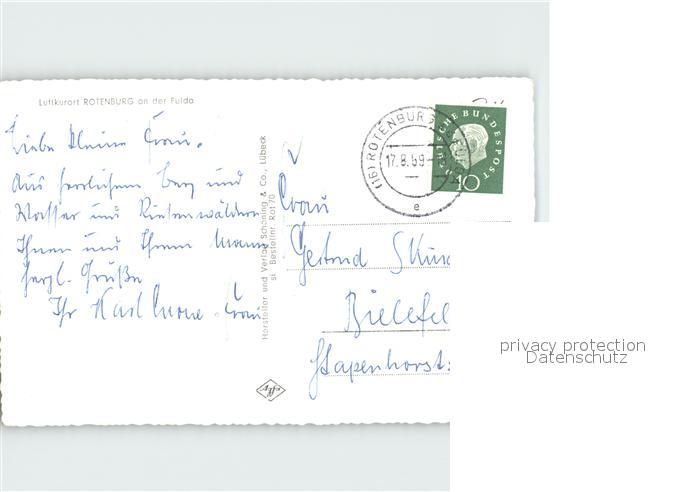 Luftkurort ROTENBURG an der Fulda
Liebe kleine Frau.
Aus herrlichem Berg und
Wasser und Riesenwäldern
Ihnen und Ihrem Mann
herzl. Grüße
Ihr Karl
Hersteller und Verlag Schöning & Co., Lübeck
Bestellnr. Rot 70
(16) ROTENBURG
17.8.59
e
DEUTSCHE BUNDESPOST
10
Frau
Gertrud
Bielefel
Stapenhorst
privacy protection
Datenschutz